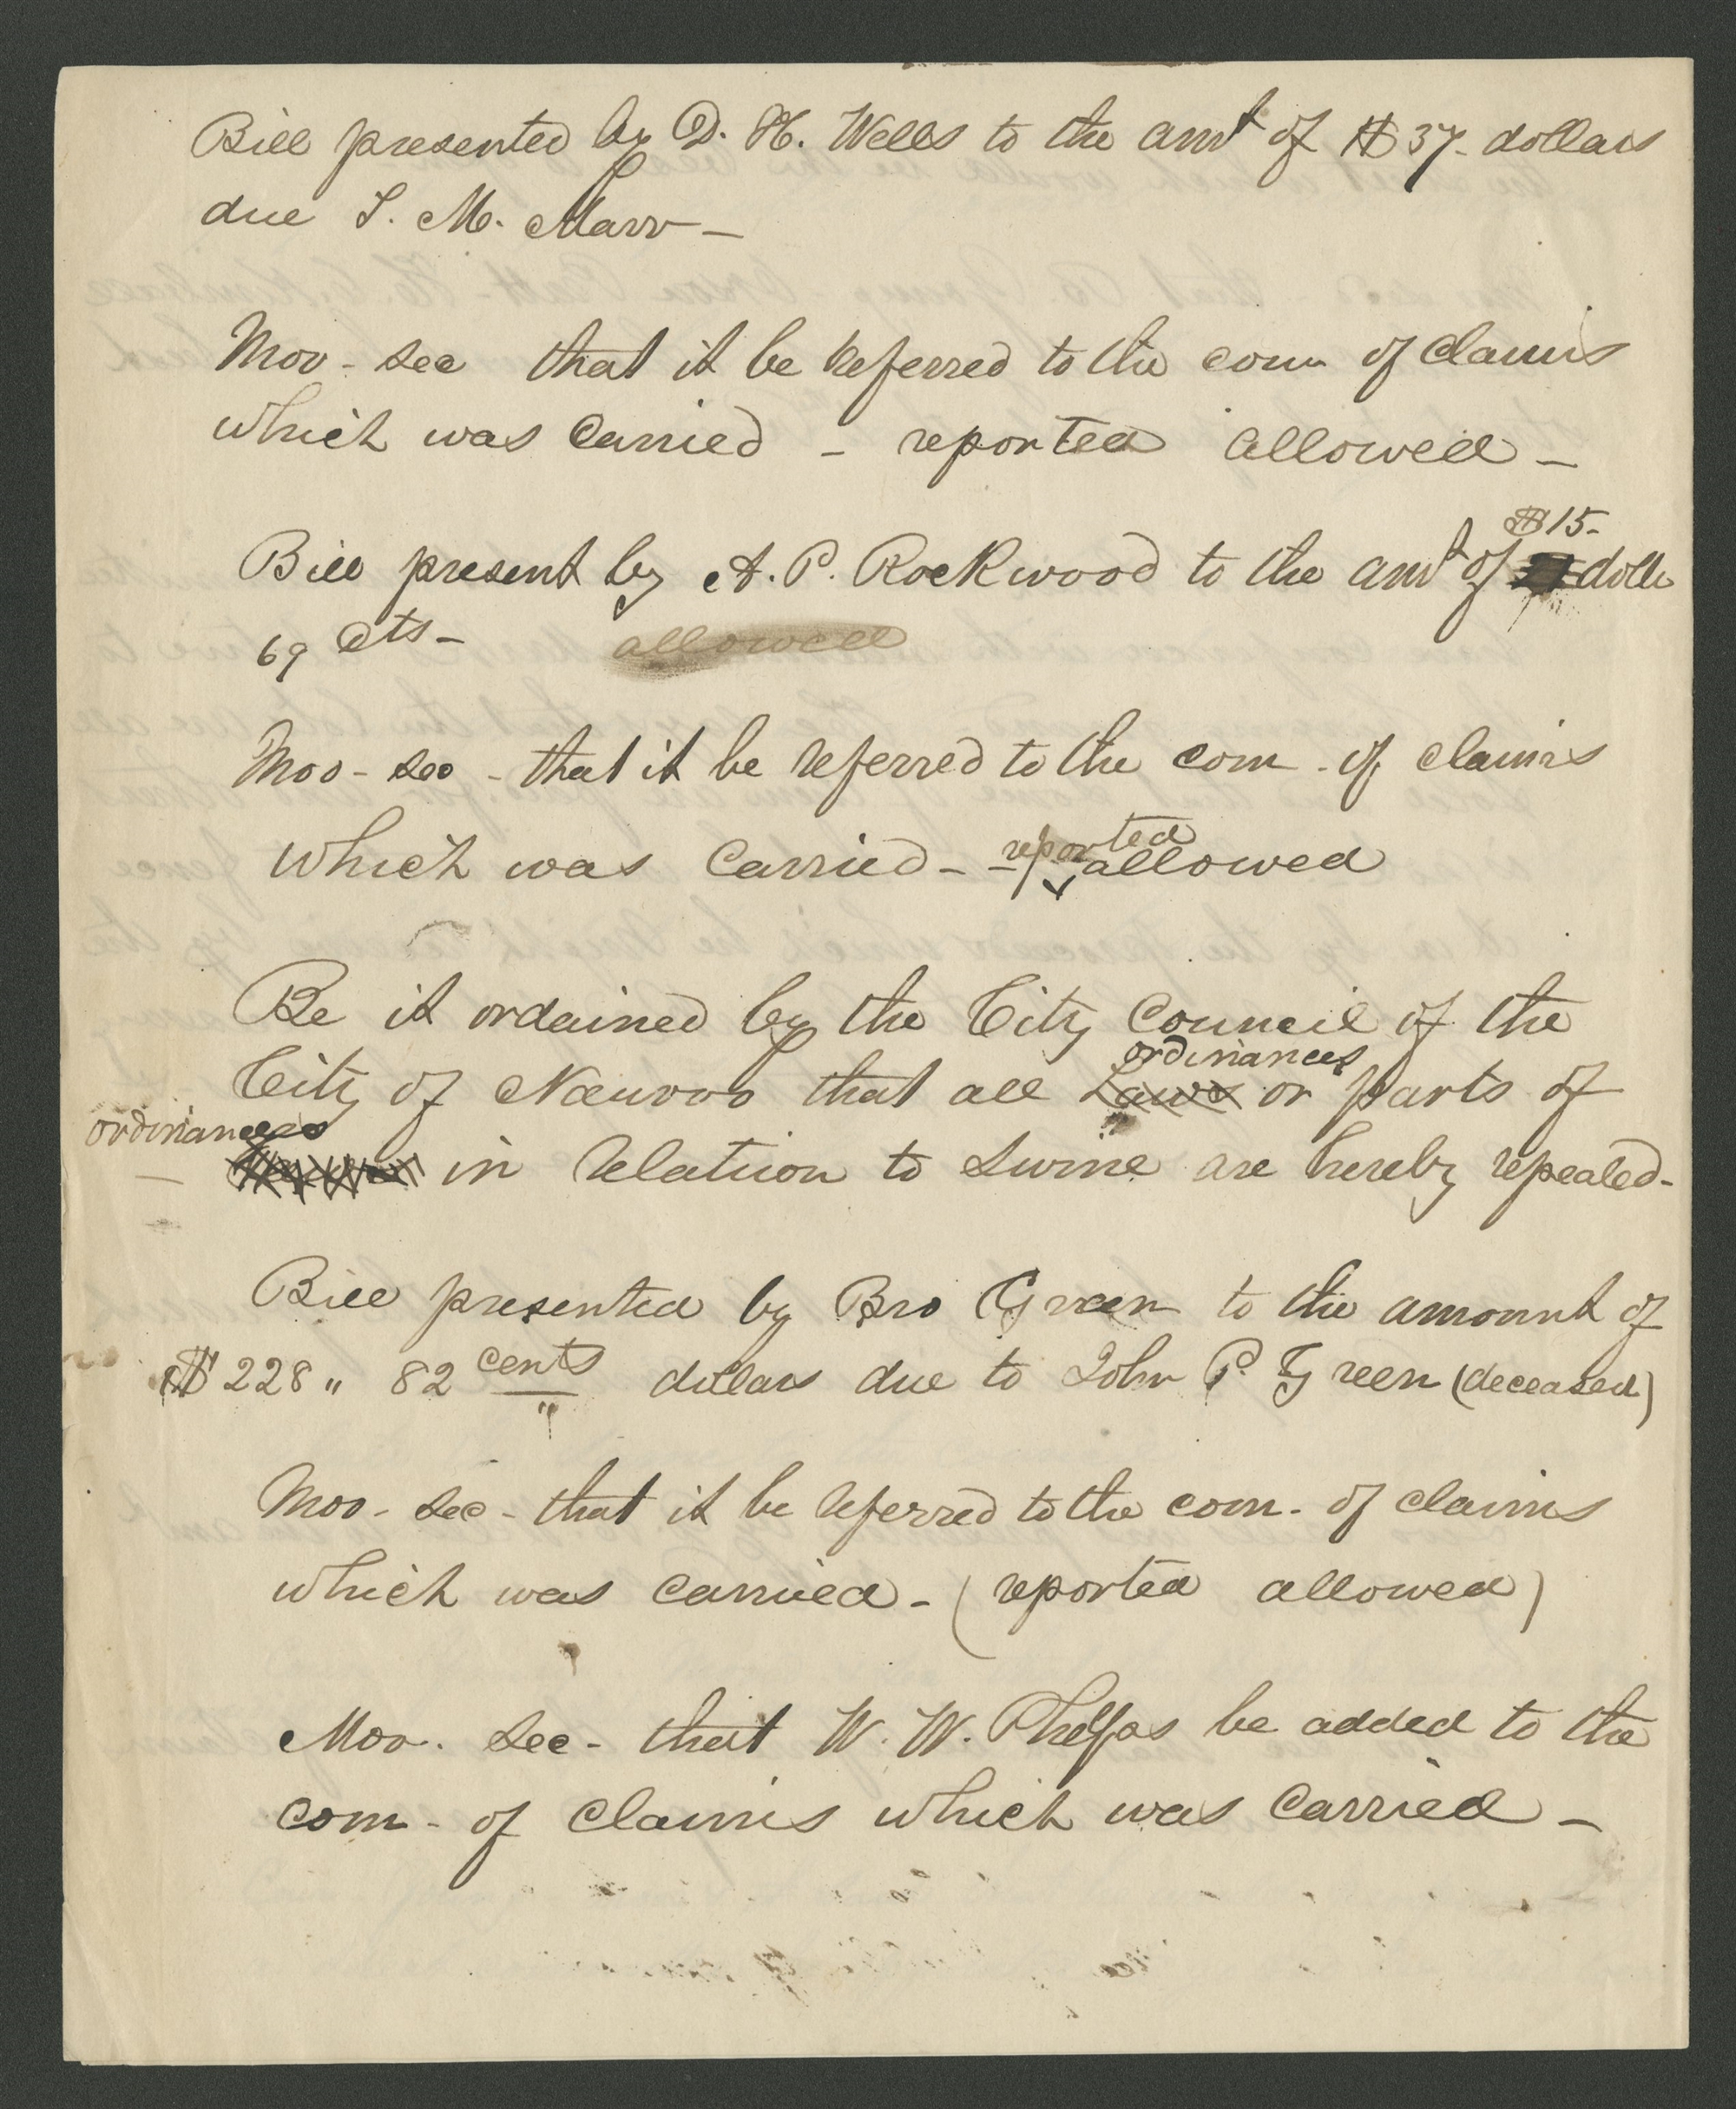 Bill presented by D. H. Wells to the amt of $37- dollars
due S. M. Marr -
Mov - sec that it be referred to the com of claims
which was carried - reported allowed -
$15-
Bill present by A. P. Rockwood to the amt of dolls
69 cts - allowed
Mov - sec - that it be referred to the com - of claims
reported
which was carried - - allowed
Be it ordained by the City Council of the
ordinances
City of Nauvoo that all Laws or parts of
ordinances
in relation to swine are hereby repealed -
Bill presented by Bro Green to the amount of
$228 " 82 cents dollars due to John P. Green (deceased)
Mov - sec - that it be referred to the com - of claims
which was carried - (reported allowed)
Mov - sec - that W. W. Phelps be added to the
com - of claims which was carried -